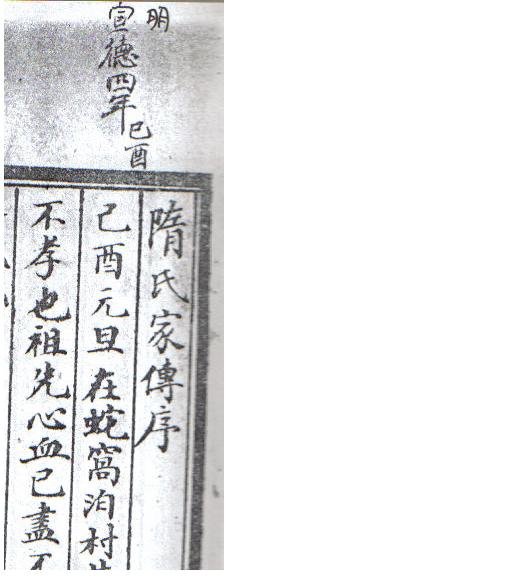 明
宣德四年己酉
隋氏家傳序
己酉元旦在蛇窩泊村
不孝也祖先心血已盡不